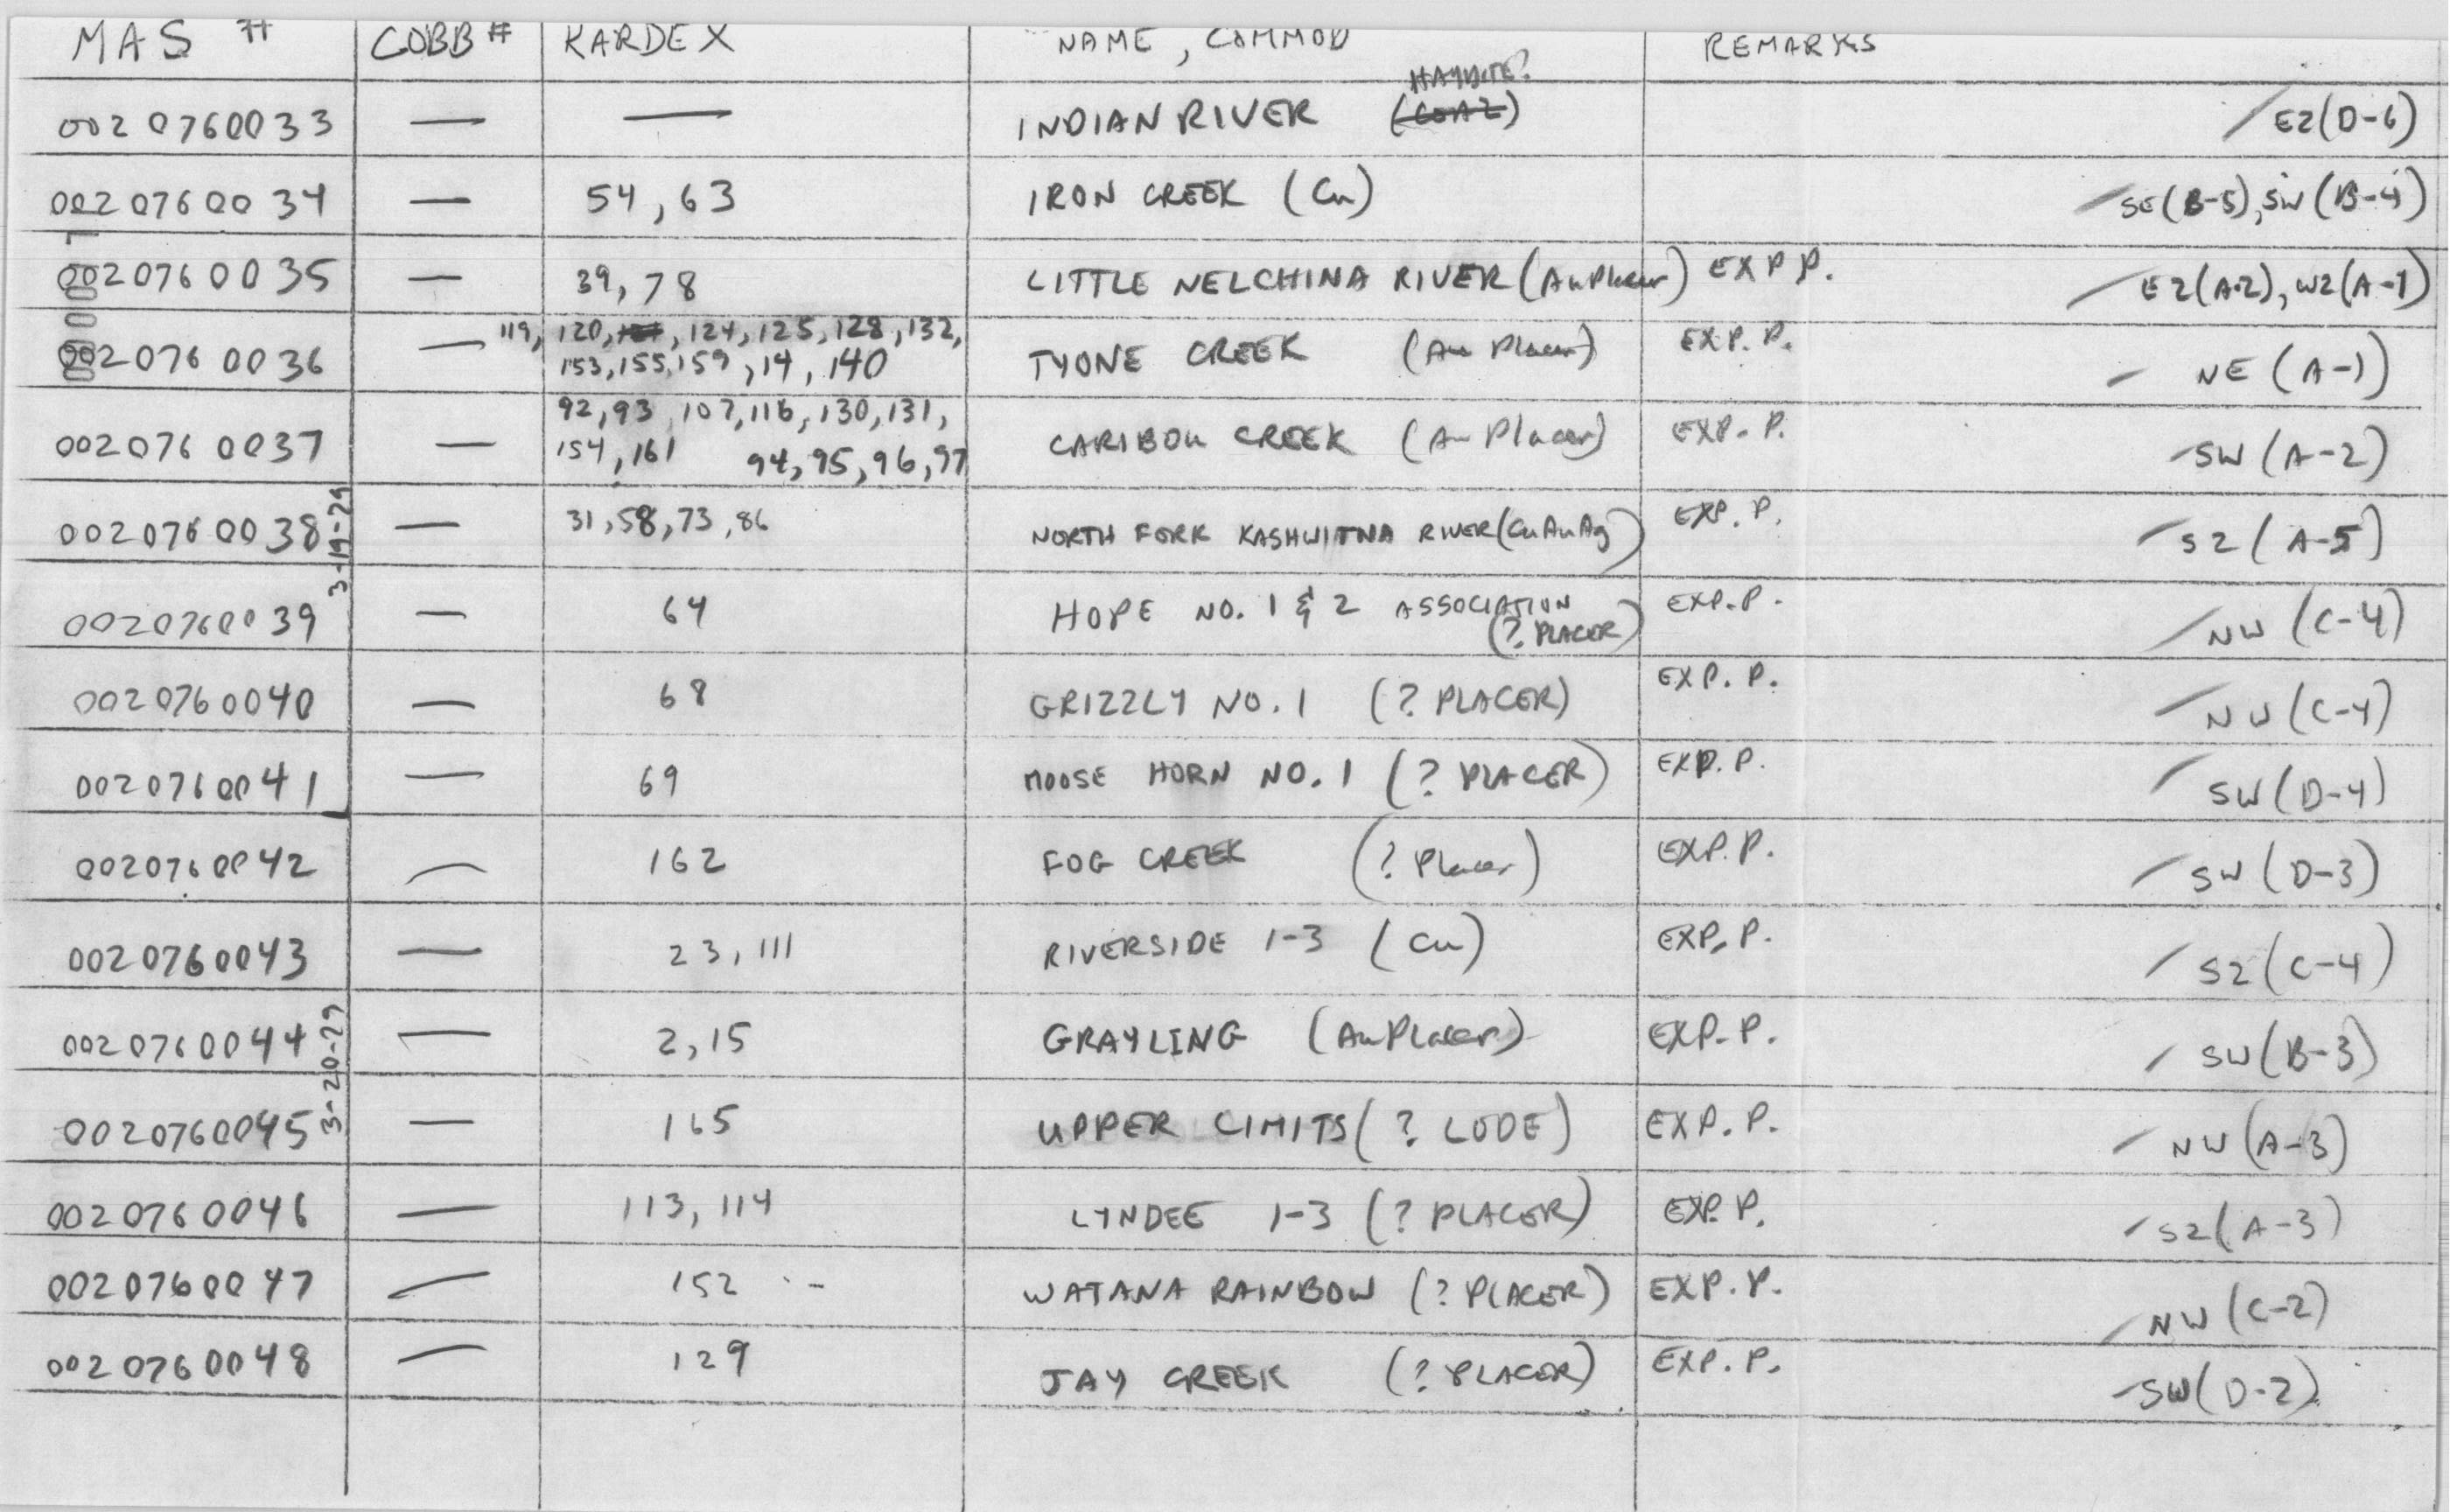 MAS # COBB # KARDEX NAME, COMMOD REMARKS
0020760033 — — INDIAN RIVER E2(D-6)
0020760034 — 54, 63 IRON CREEK (Cu) SE(B-5), SW(B-4)
0020760035 — 39, 78 LITTLE NELCHINA RIVER (Au Placer) EXP P. E2(A-2), W2(A-1)
119, 120, 124, 125, 128, 132,
0020760036 — 153, 155, 159, 14, 140 TYONE CREEK (Au Placer) EXP. P. NE (A-1)
92, 93, 107, 116, 130, 131,
0020760037 — 154, 161 94, 95, 96, 97 CARIBOU CREEK (Au Placer) EXP. P. SW (A-2)
0020760038 — 31, 58, 73, 86 NORTH FORK KASHWITNA RIVER (Cu Au Ag) EXP. P. S2 (A-5)
3-19-29
0020760039 — 64 HOPE NO. 1 & 2 ASSOCIATION EXP. P. NW (C-4)
(? PLACER)
0020760040 — 68 GRIZZLY NO. 1 (? PLACER) EXP. P. NW (C-4)
0020760041 — 69 MOOSE HORN NO. 1 (? PLACER) EXP. P. SW (D-4)
0020760042 — 162 FOG CREEK (? Placer) EXP. P. SW (D-3)
0020760043 — 23, 111 RIVERSIDE 1-3 (Cu) EXP. P. S2 (C-4)
0020760044 — 2, 15 GRAYLING (Au Placer) EXP. P. SW (B-3)
3-20-29
0020760045 — 165 UPPER LIMITS (? LODE) EXP. P. NW (A-3)
0020760046 — 113, 114 LYNDEE 1-3 (? PLACER) EXP. P. S2 (A-3)
0020760047 — 152 WATANA RAINBOW (? PLACER) EXP. P. NW (C-2)
0020760048 — 129 JAY CREEK (? PLACER) EXP. P. SW (D-2)